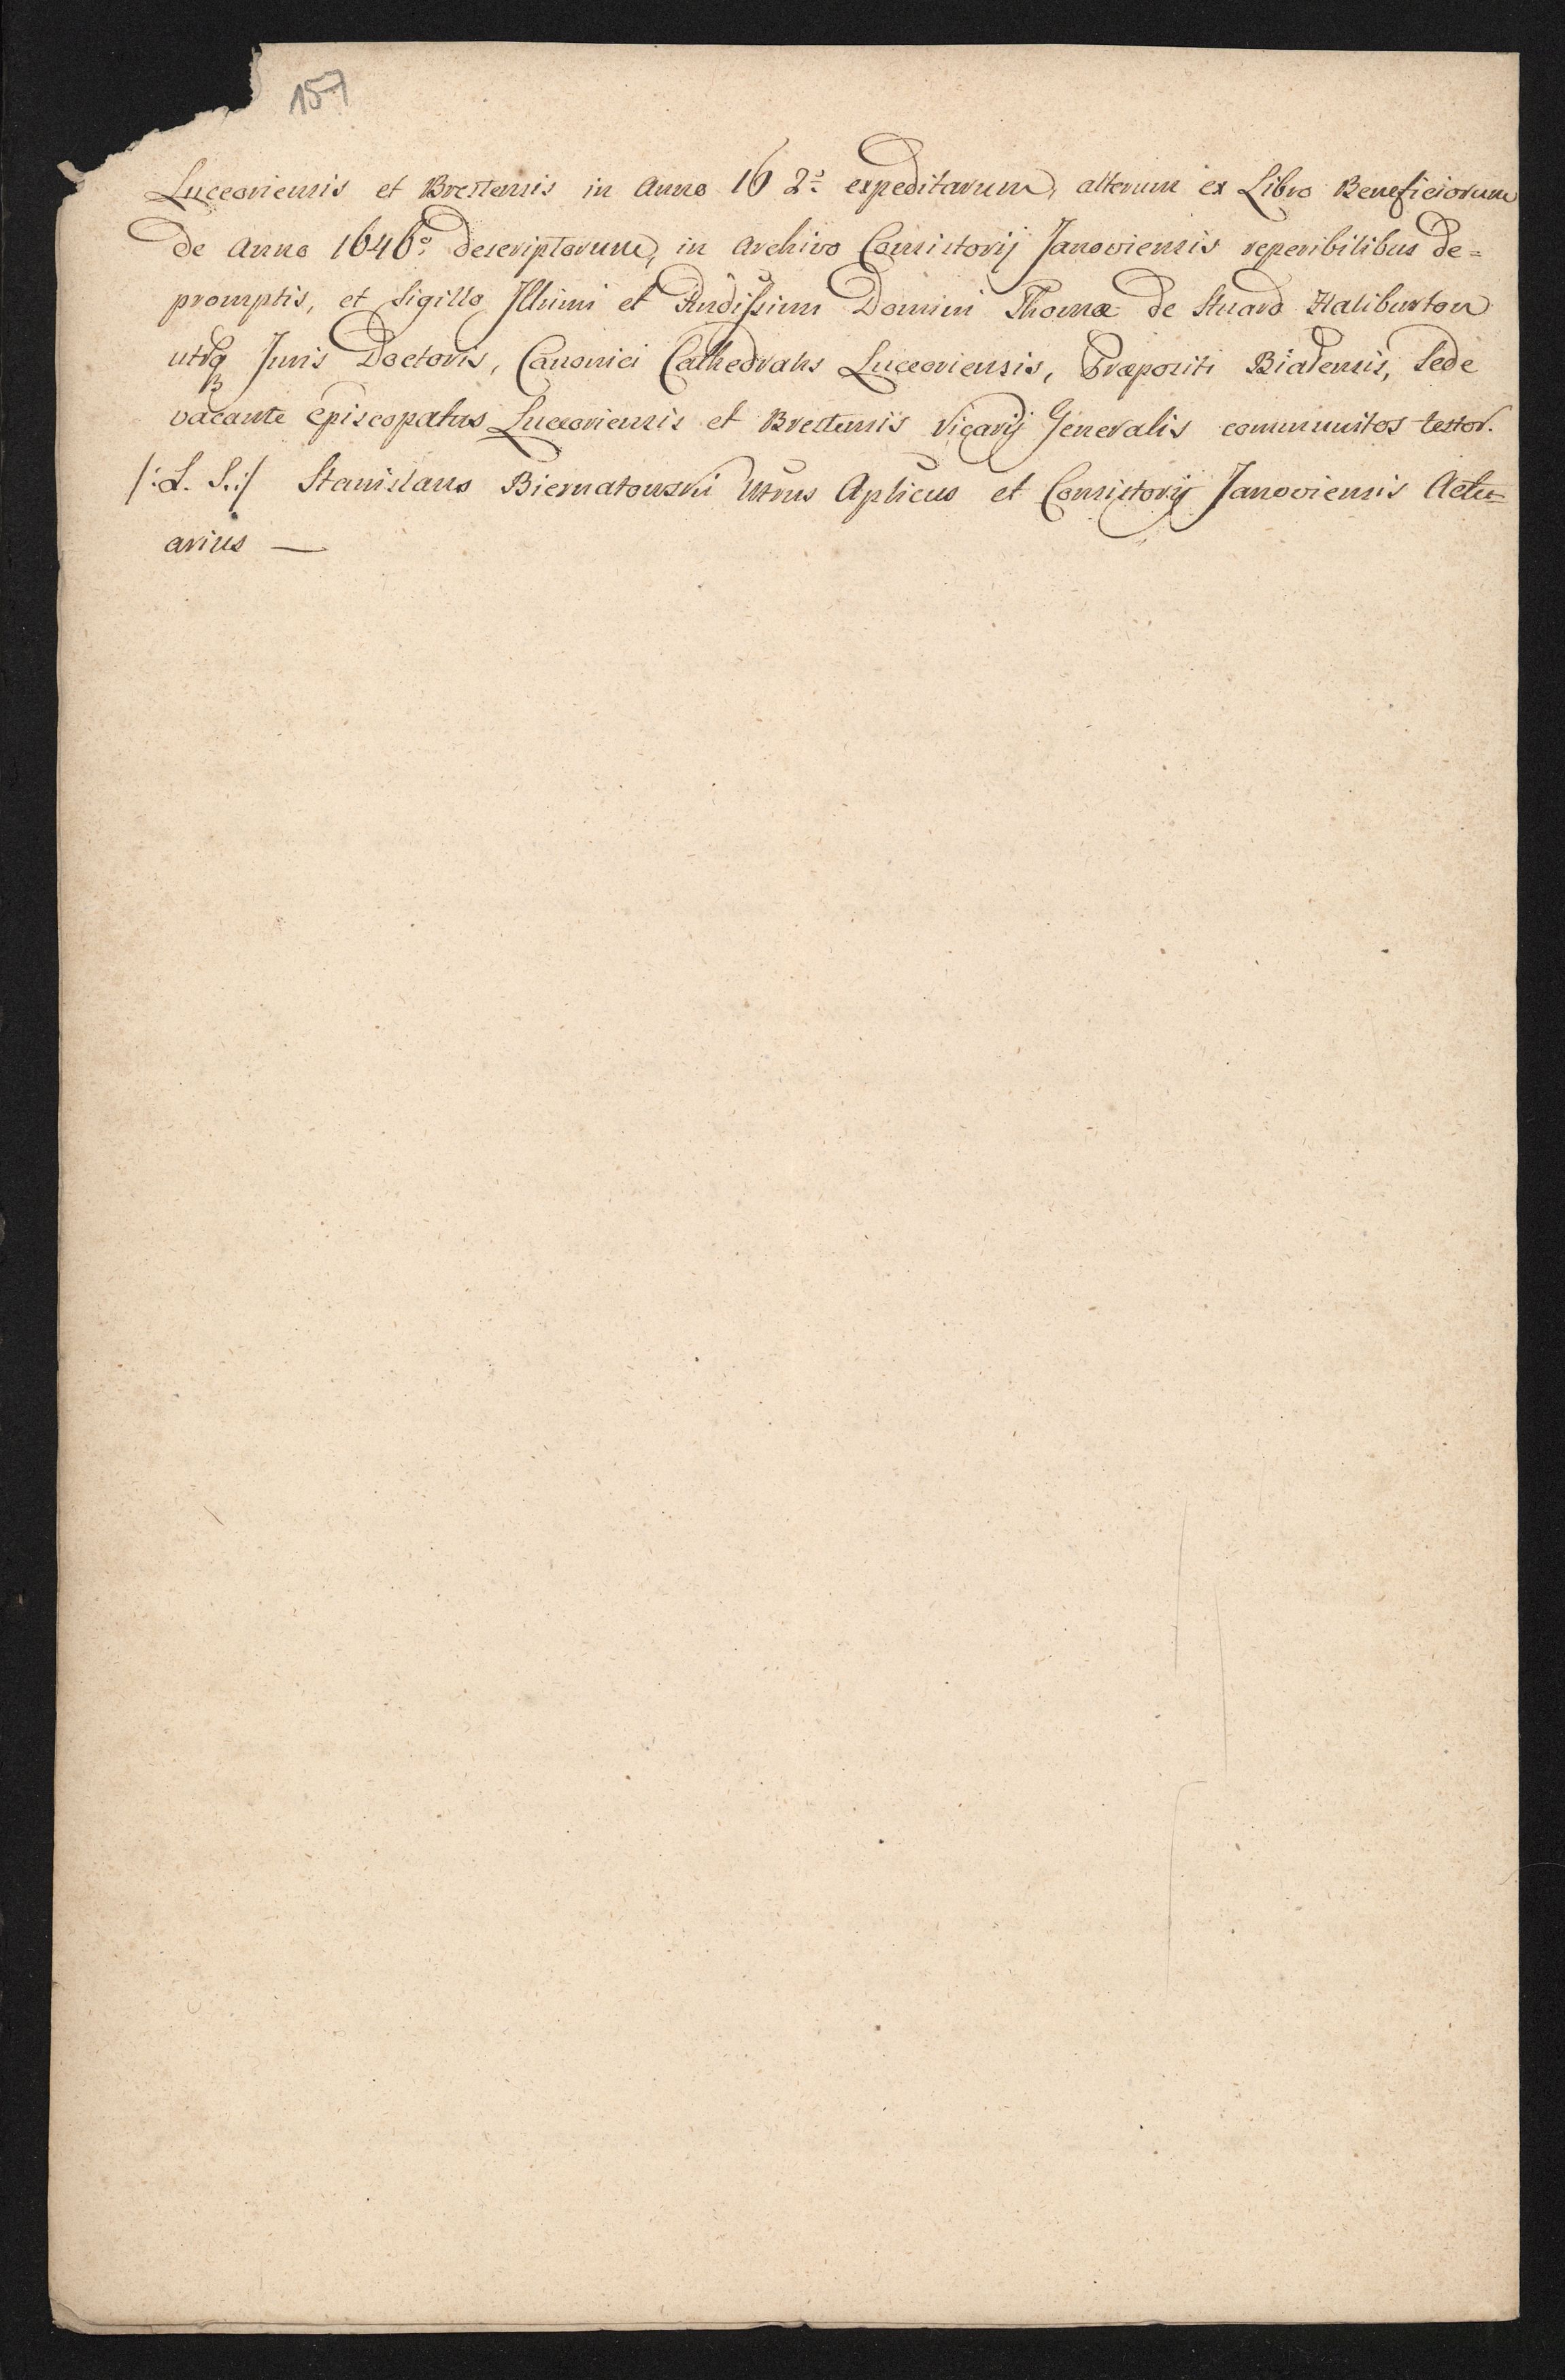 157
Luceoriensis et Brestensis in Anno 16 2º expeditarum, alterum ex Libro Beneficiorum
de Anno 1646º descriptorum, in Archivo Consistorij Janoviensis reperibilibus de=
promptis, et Sigillo Illrimi et Rndissimi Domini Thomæ de Stuard Haliburton
utrq Juris Doctoris, Canonici Cathedralis Luceoriensis, Præpositi Bialensis, Sede
vacante Episcopatus Luceoriensis et Brestensis Vicarij Generalis communitos testor.
/: L. S. :/ Stanislaus Biernatowski Ntrus Aplicus et Consistorij Janoviensis Actu=
arius —